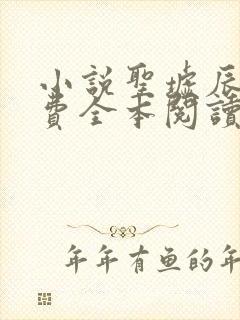 小説聖墟辰
費全本閱讀
年年有鱼的年